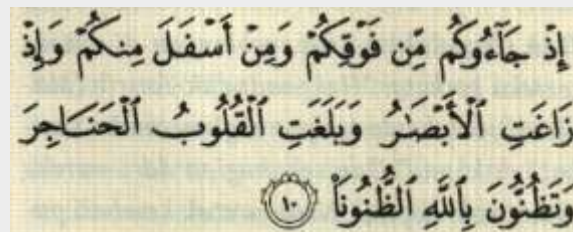 إِذْ جَآءُوكُم مِّن فَوْقِكُمْ وَمِنْ أَسْفَلَ مِنكُمْ وَإِذْ
زَاغَتِ ٱلْأَبْصَـٰرُ وَبَلَغَتِ ٱلْقُلُوبُ ٱلْحَنَاجِرَ
وَتَظُنُّونَ بِٱللَّهِ ٱلظُّنُونَا۠ ١٠